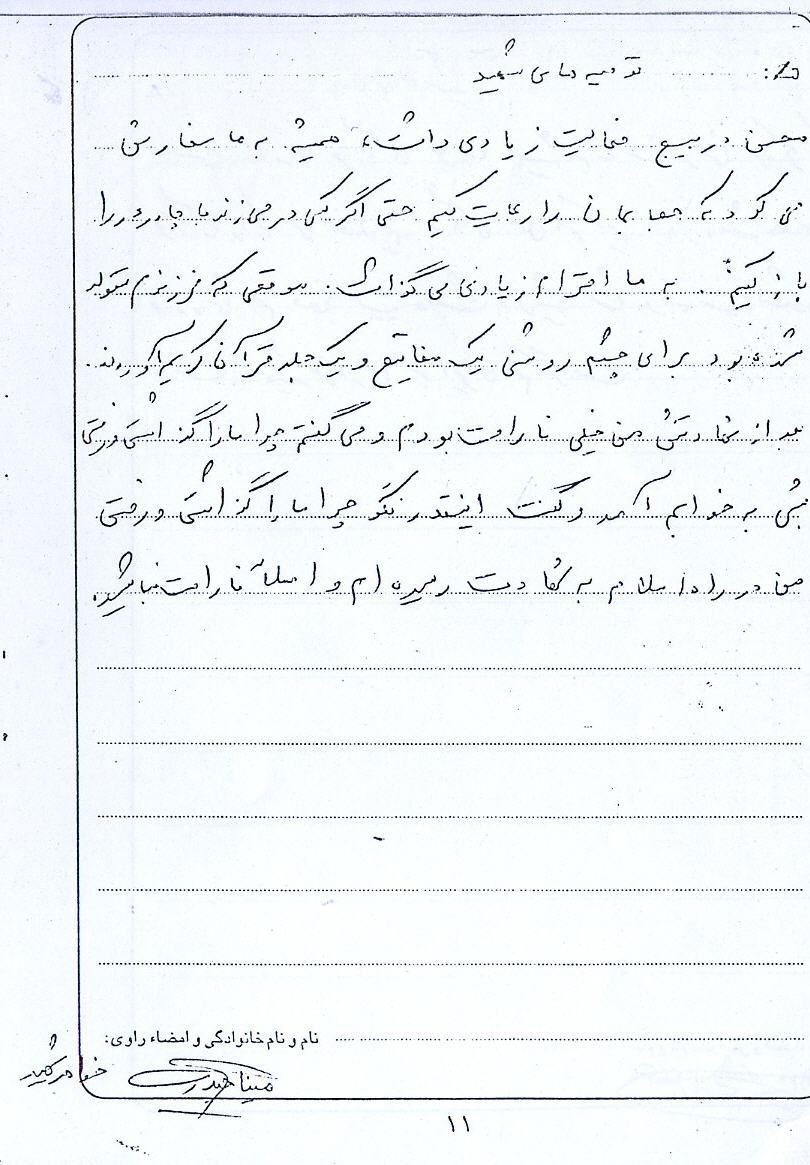 توصیه های شهید
محسن در بسیج فعالیت زیادی داشت، همیشه به ما سفارش
می کرد که حجابمان را رعایت کنیم حتی اگر کسی در می زند با چادر در را
باز کنیم. به ما احترام زیادی می گذاشت. موقعی که فرزندم متولد
شده بود برای چشم روشنی یک مفاتیح و یک جلد قرآن کریم آوردند.
بعد از شهادتش من خیلی ناراحت بودم و می گفتم چرا ما را گذاشتی و رفتی
شبی به خوابم آمد و گفت اینقدر نگو چرا ما را گذاشتی و رفتی
من در راه اسلام به شهادت رسیده ام و اصلاً ناراحت نباشید.
نام و نام خانوادگی و امضاء راوی:
مینا حیدری خواهر شهید
۱۱